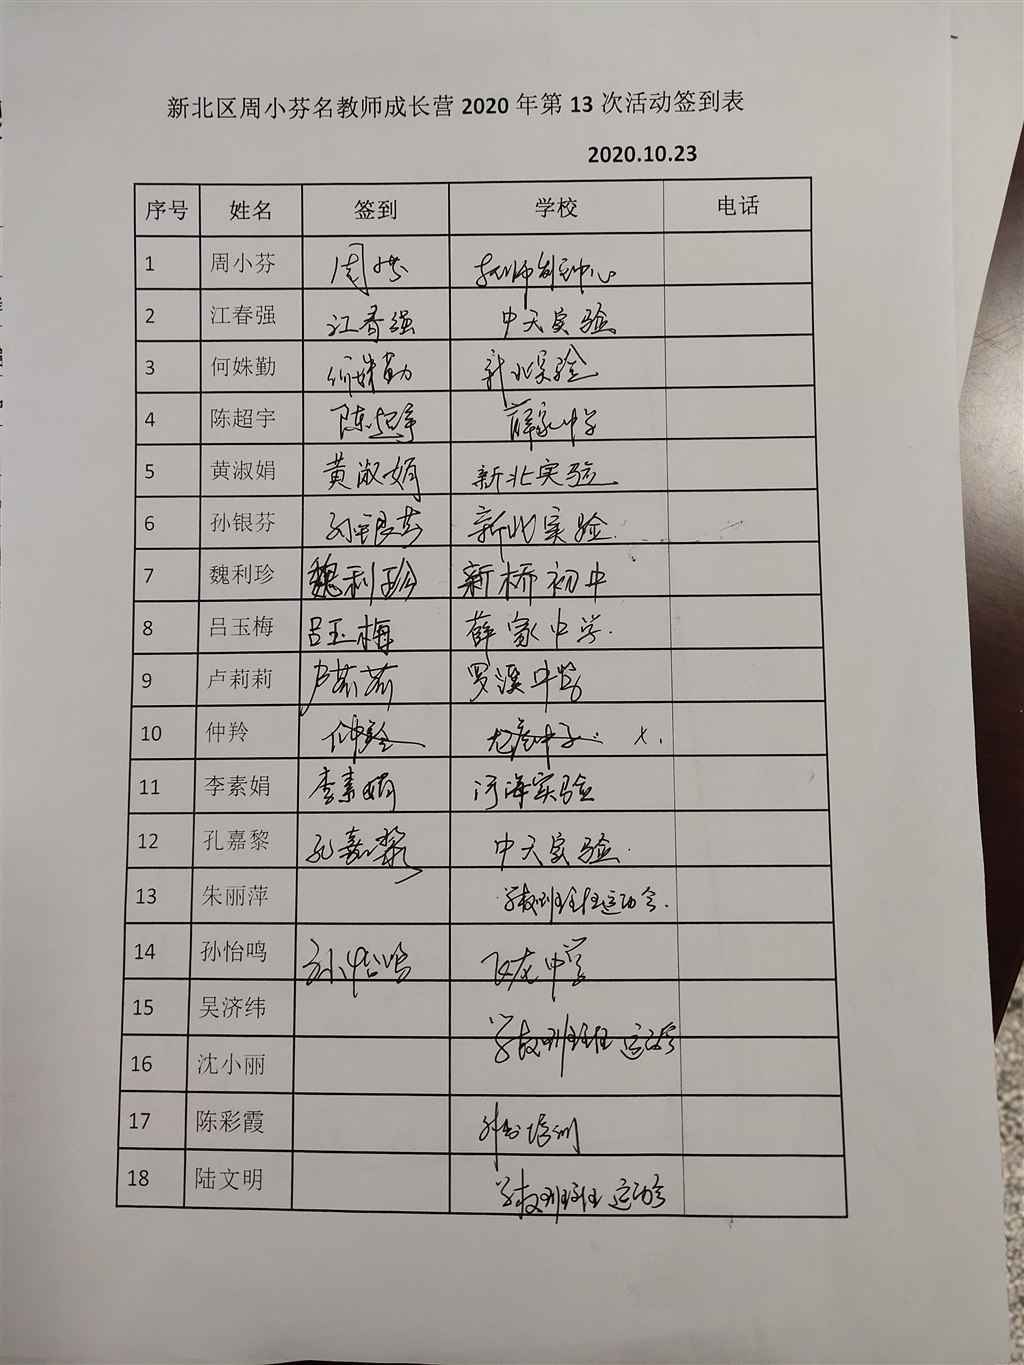 新北区周小芬名教师成长营 2020 年第 13 次活动签到表
2020.10.23
序号 姓名 签到 学校 电话
1 周小芬 周小芬
2 江春强 江春强 中天实验
3 何姝勤 何姝勤 新北实验
4 陈超宇 陈超宇 薛家中学
5 黄淑娟 黄淑娟 新北实验
6 孙银芬 孙银芬 新北实验.
7 魏利珍 魏利珍 新桥初中
8 吕玉梅 吕玉梅 薛家中学.
9 卢莉莉 卢莉莉 罗溪中学
10 仲羚 仲羚 x.
11 李素娟 李素娟 河海实验
12 孔嘉黎 孔嘉黎 中天实验.
13 朱丽萍 学校班主任运动会.
14 孙怡鸣 孙怡鸣 飞龙中学
15 吴济纬 学校班主任 运动会
16 沈小丽
17 陈彩霞 外出培训
18 陆文明 学校班主任 运动会